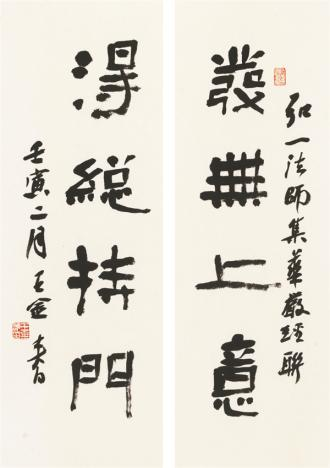 弘一法師集華嚴經聯
發無上意
得總持門
壬寅二月王金書